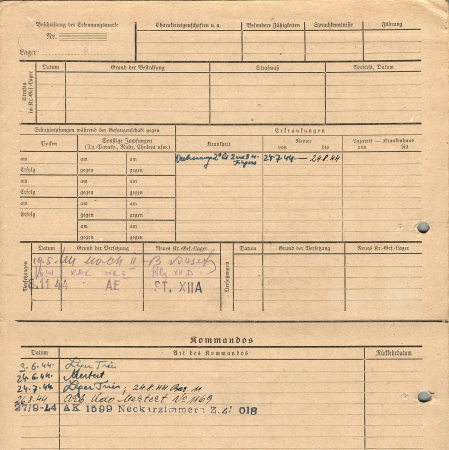 Beschriftung der Erkennungsmarke
Nr.
Lager:
Charaktereigenschaften u. a.
Besondere Fähigkeiten
Sprachkenntnisse
Führung
Strafen im Kr.-Gef.-Lager
Datum
Grund der Bestrafung
Strafmaß
Verbüßt, Datum
Schutzimpfungen während der Gefangenschaft gegen
Erkrankungen
Pocken
Sonstige Impfungen
(Ty.-Paraty., Ruhr, Cholera usw.)
Krankheit
Revier
von bis
Lazarett — Krankenhaus
von bis
am am am
Erfolg gegen gegen
am am am
Erfolg gegen gegen
am am am
Erfolg gegen gegen
am am am
Erfolg gegen gegen
am am
gegen gegen
am am
gegen gegen
27.7.44 — 24.8.44
Versetzungen
Datum
Grund der Versetzung
Neues Kr.-Gef.-Lager
Versetzungen
Datum
Grund der Versetzung
Neues Kr.-Gef.-Lager
19.5.
8.11 44 AE ST. XIIA
Kommandos
Datum
Art des Kommandos
Rückkehrdatum
3.6.44. Lager Trier
24.6.44. Mertert
24.7.44 Lager Trier, 24.8.44
26.8.44 Arb Kdo Mertert No 1169
27/9-44 AK 1599 Neckarzimmern Z. 018